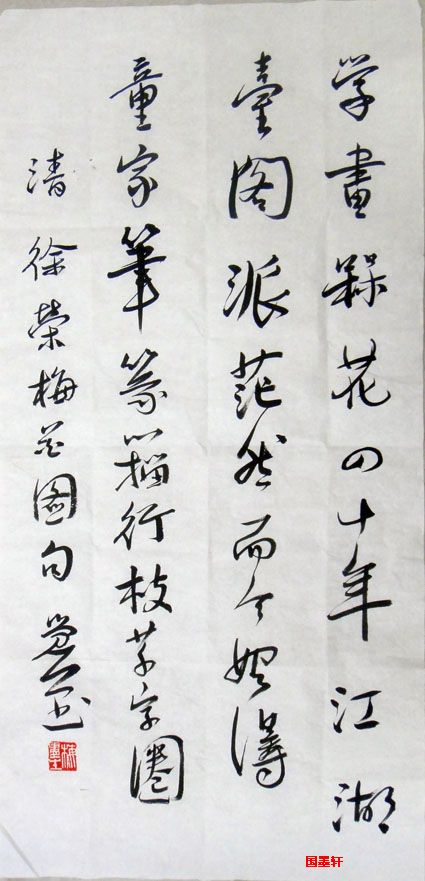 学畫槑花四十年江湖
臺阁派茫然而今始得
童家筆篆籀行枝草字圈
清徐榮梅花圖句
国墨轩